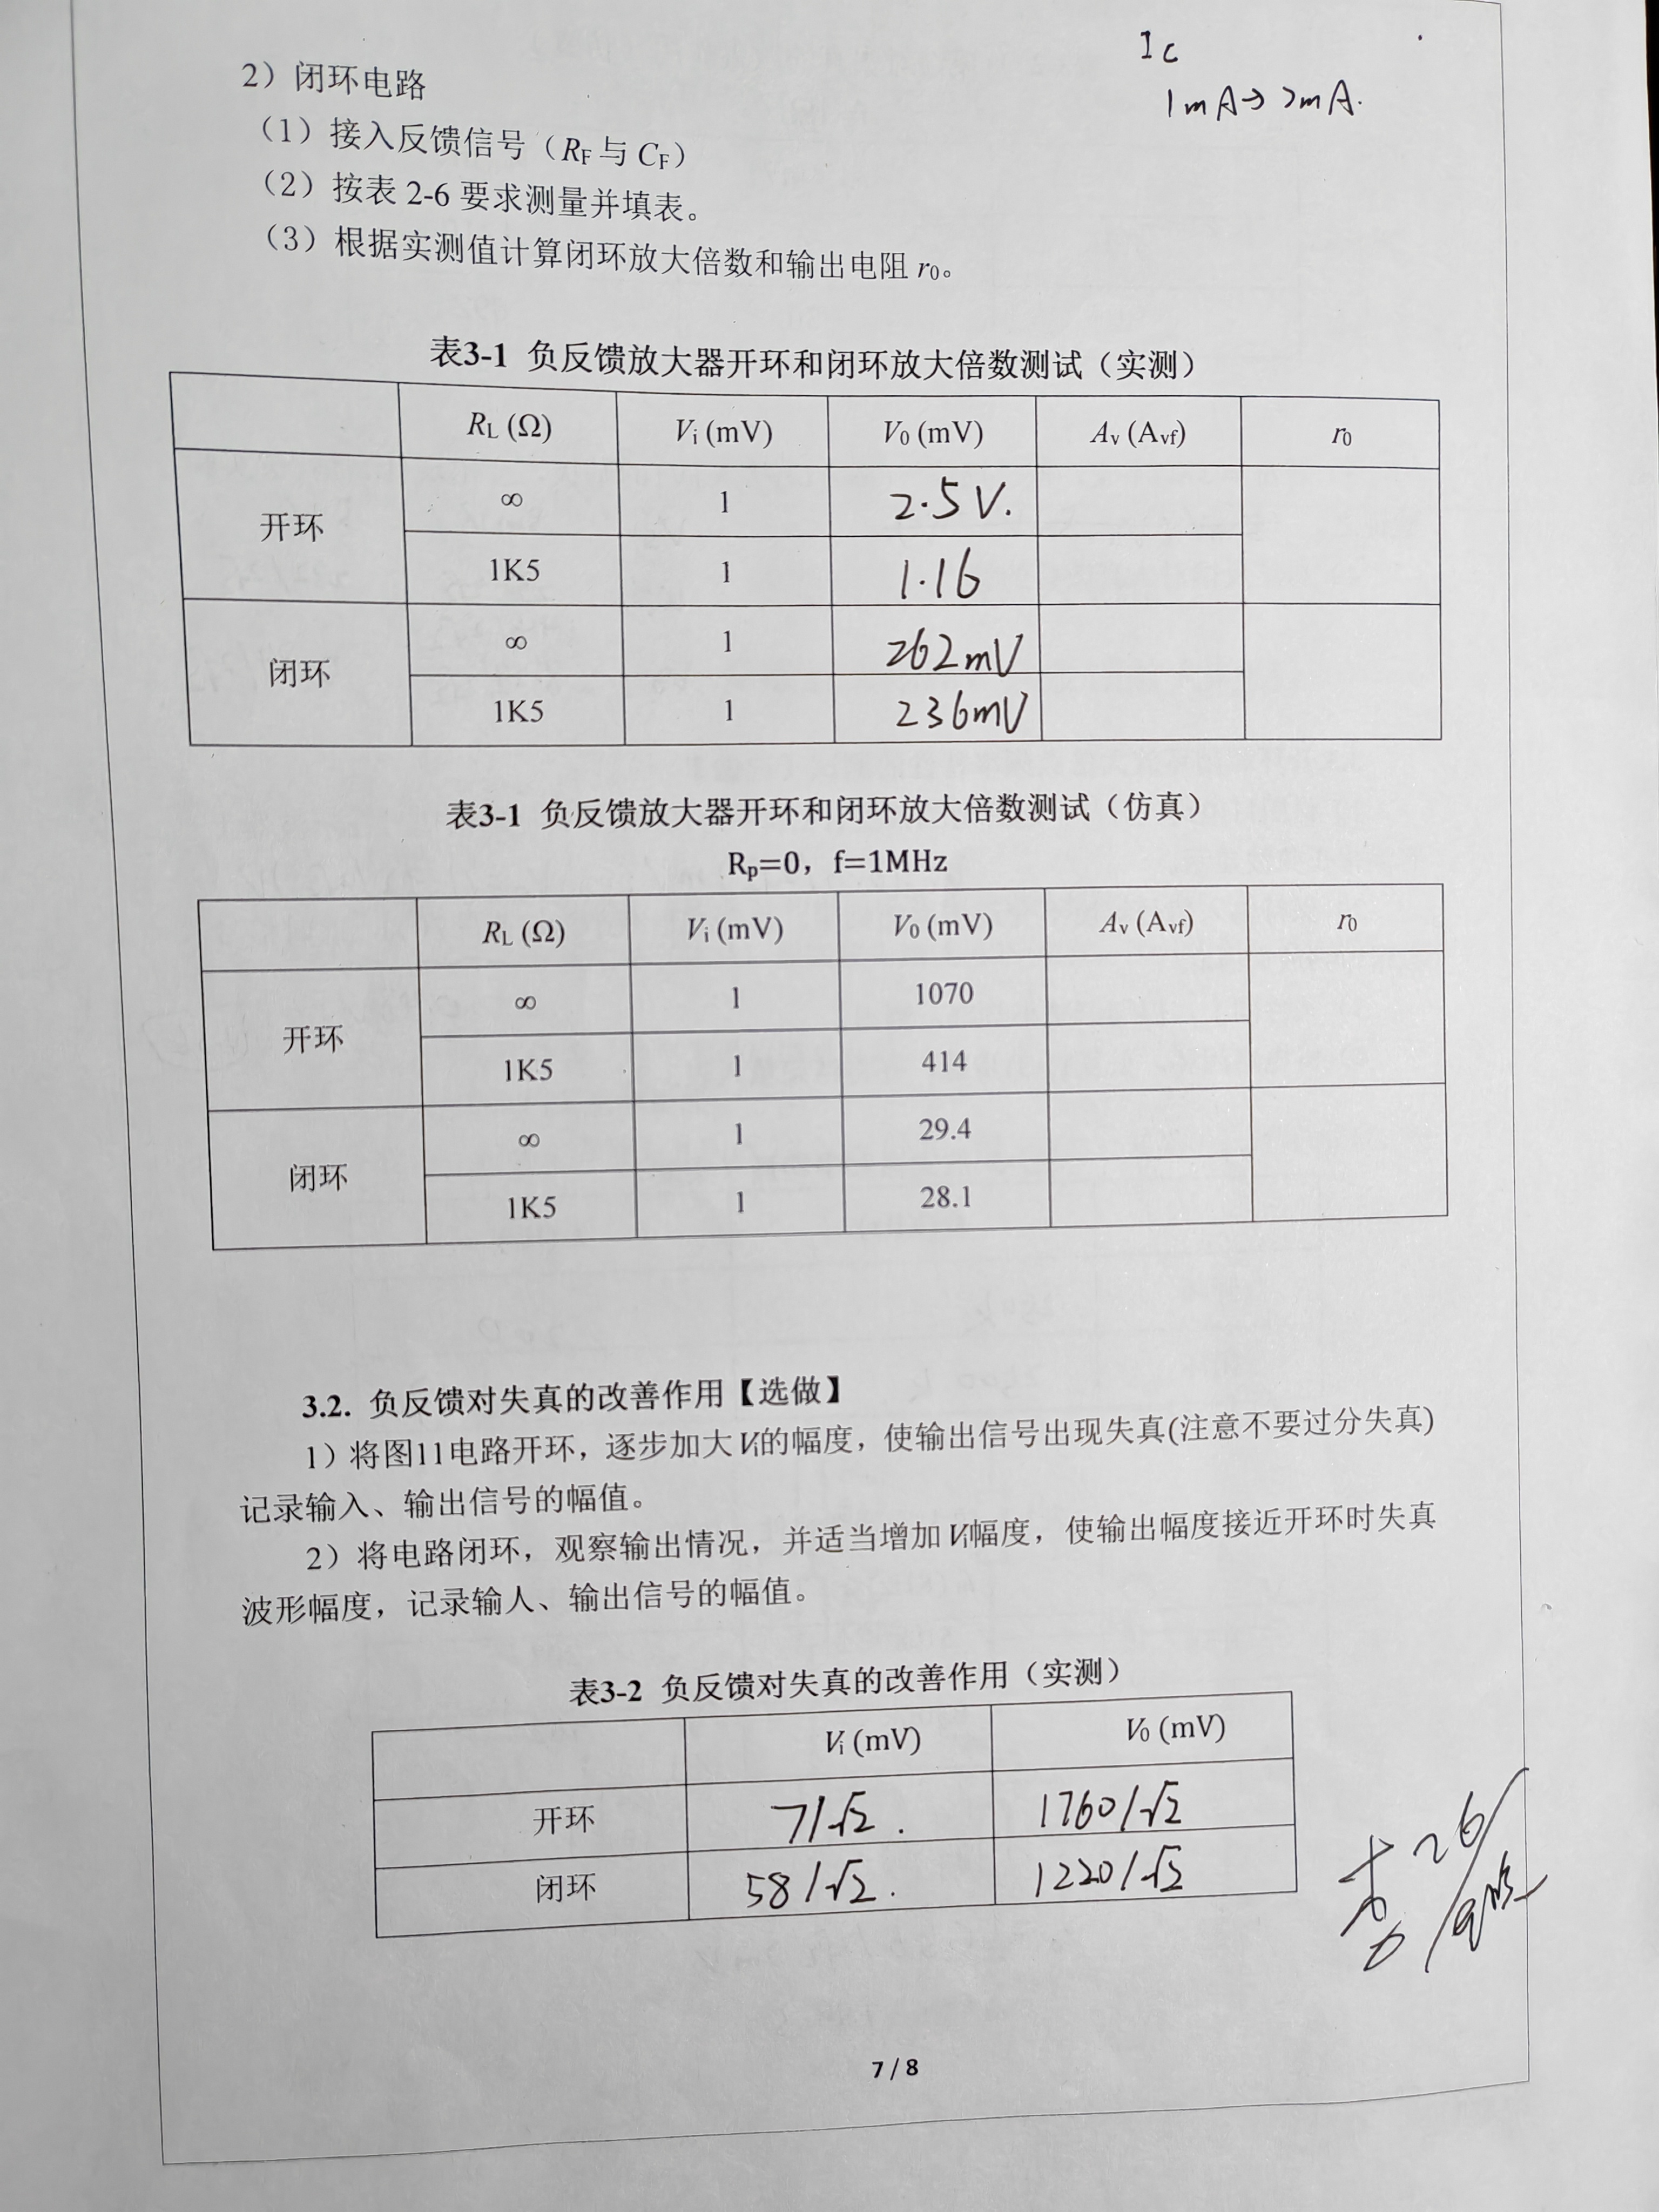 Ic
1mA→2mA.
2）闭环电路
（1）接入反馈信号（RF与 CF）
（2）按表 2-6 要求测量并填表。
（3）根据实测值计算闭环放大倍数和输出电阻 r0。
表3-1 负反馈放大器开环和闭环放大倍数测试（实测）
RL (Ω) Vi (mV) V0 (mV) Av (Avf) r0
开环
∞ 1 2.5V.
1K5 1 1.16
闭环
∞ 1 262mV
1K5 1 236mV
表3-1 负反馈放大器开环和闭环放大倍数测试（仿真）
Rp=0，f=1MHz
RL (Ω) Vi (mV) V0 (mV) Av (Avf) r0
开环
∞ 1 1070
1K5 1 414
闭环
∞ 1 29.4
1K5 1 28.1
3.2. 负反馈对失真的改善作用【选做】
1）将图11电路开环，逐步加大Vi的幅度，使输出信号出现失真(注意不要过分失真)
记录输入、输出信号的幅值。
2）将电路闭环，观察输出情况，并适当增加Vi幅度，使输出幅度接近开环时失真
波形幅度，记录输人、输出信号的幅值。
表3-2 负反馈对失真的改善作用（实测）
Vi (mV) V0 (mV)
开环 7/√2. 1760/√2
闭环 58/√2. 1220/√2
7 / 8